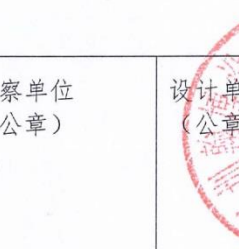 察单位
公章）
设计单
（公章